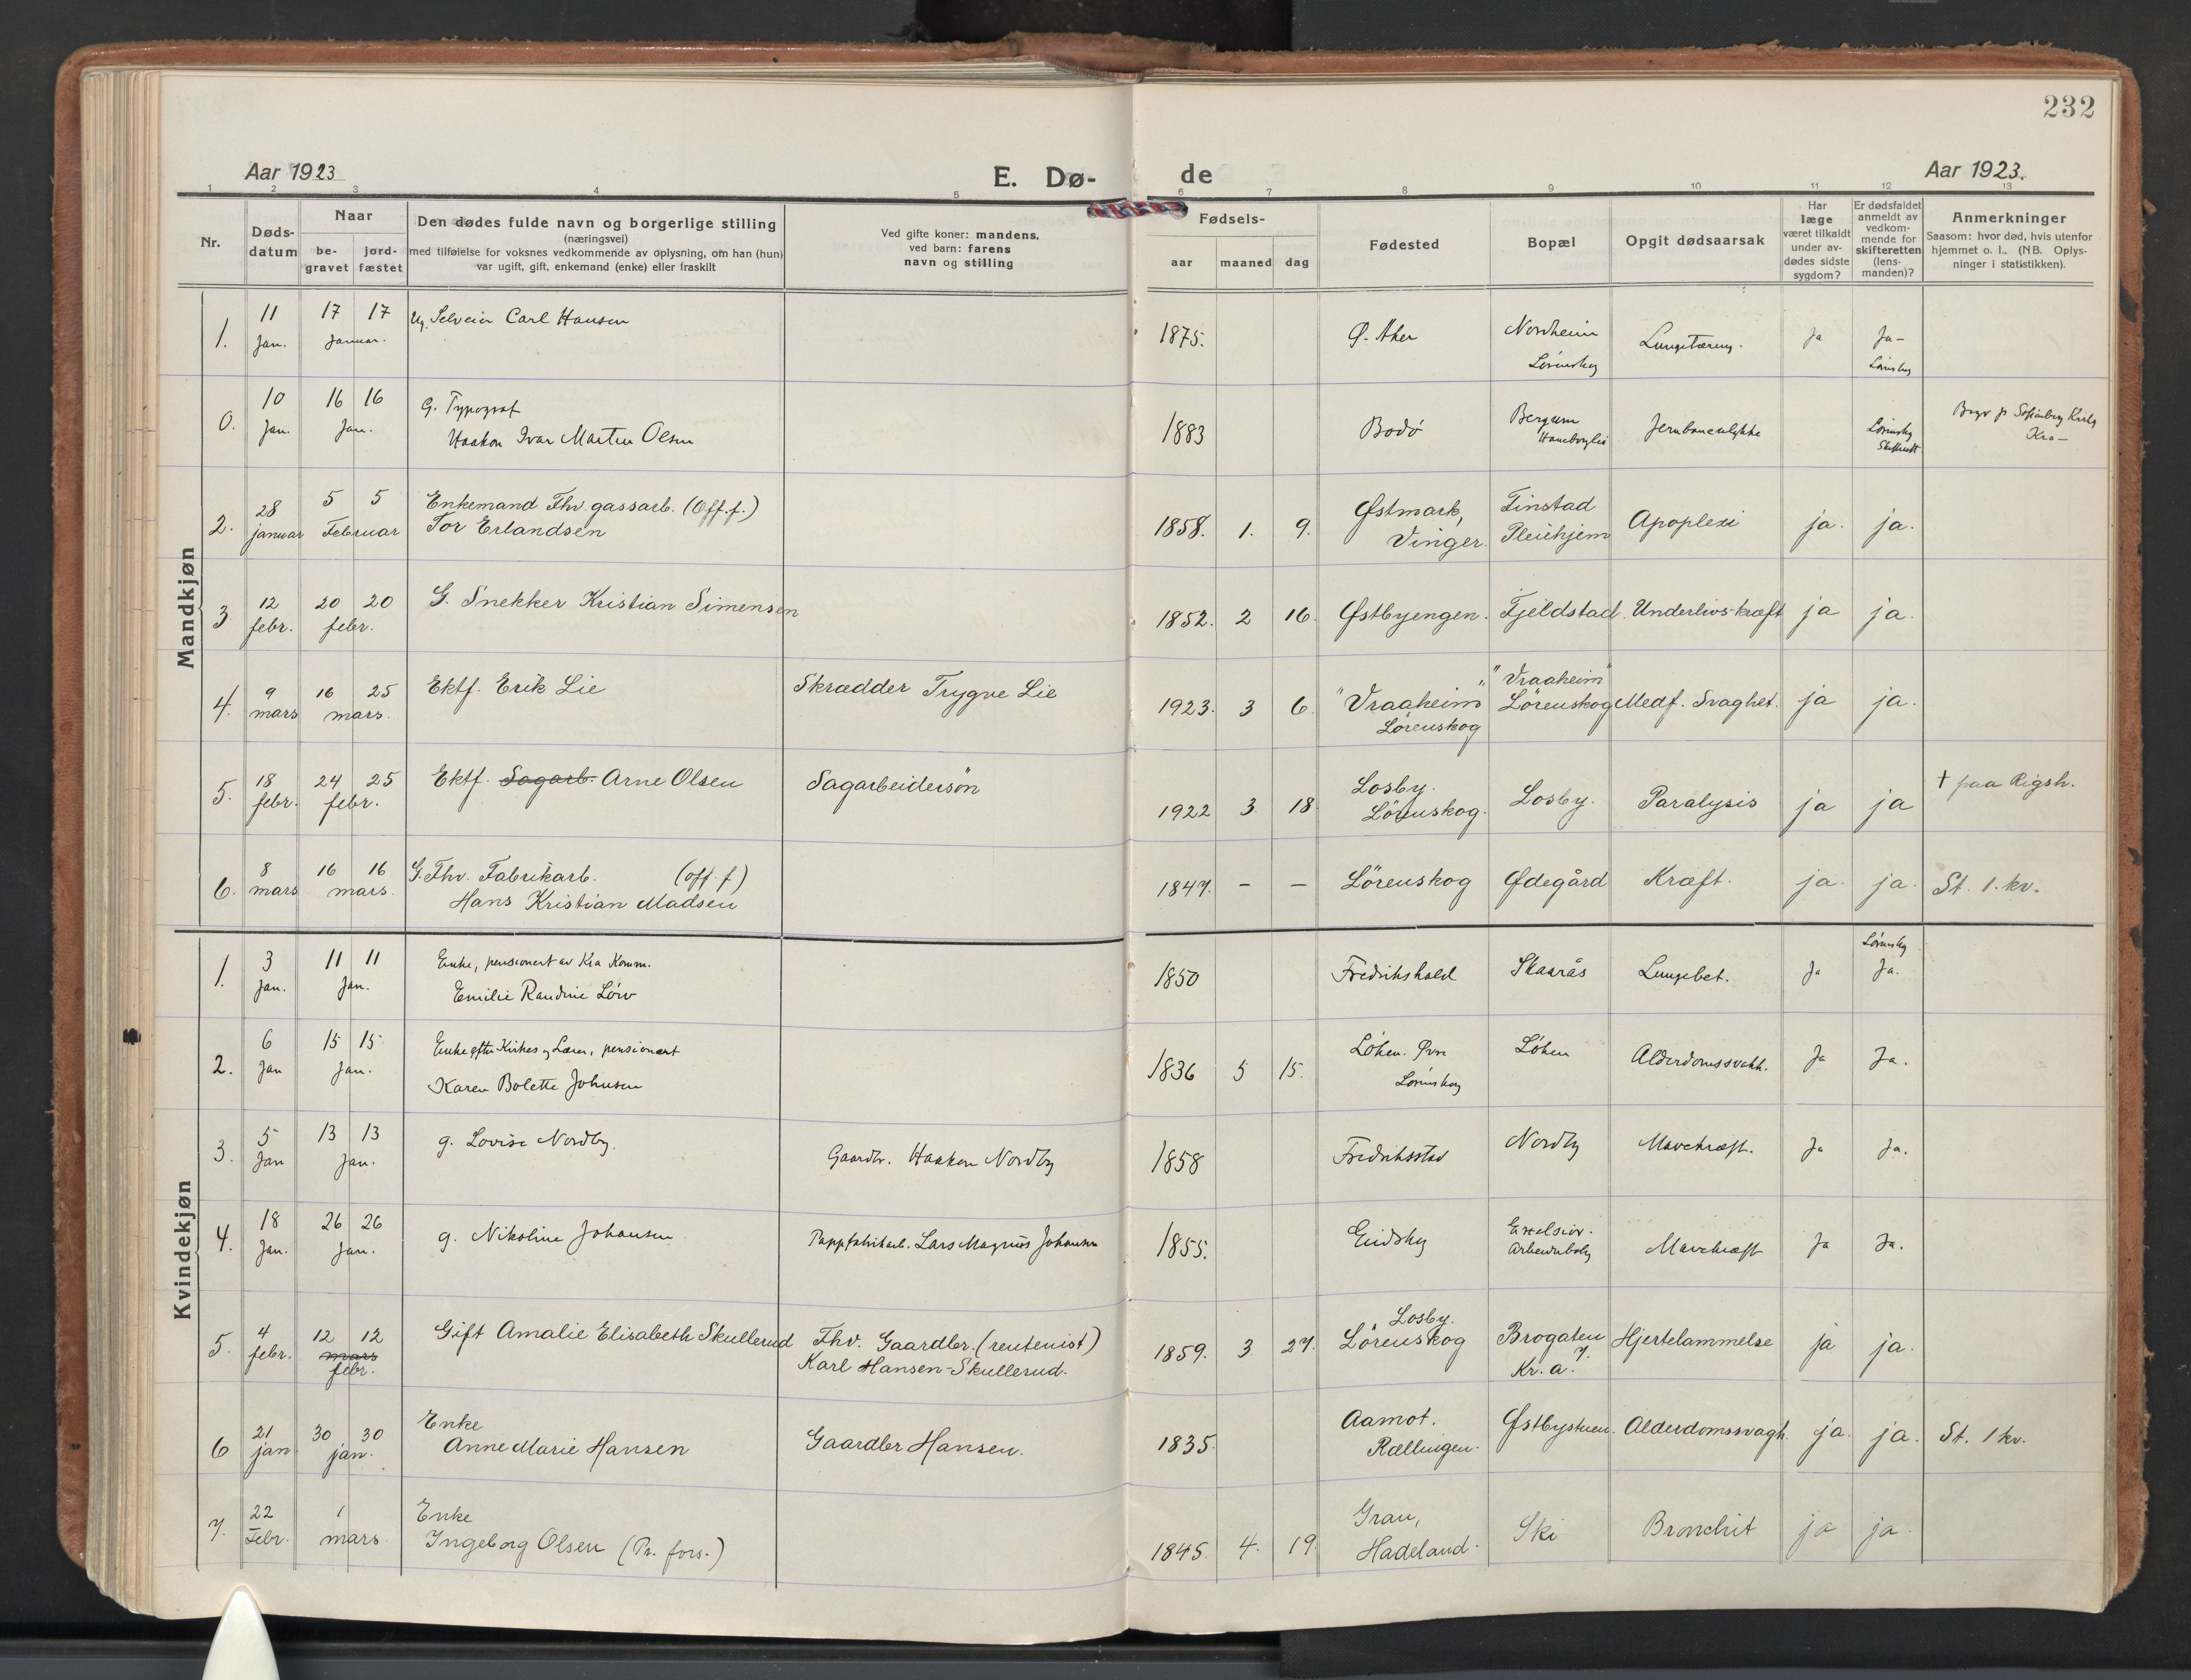 232
Aar 1923
E. Dø-
de
Aar 1923.
1 2 3 4 5 6 7 8 9 10 11 12 13
Nr.
Døds-
datum
Naar
be-
gravet
jord-
fæstet
Den dødes fulde navn og borgerlige stilling
(næringsvei)
med tilføielse for voksnes vedkommende av oplysning, om han (hun)
var ugift, gift, enkemand (enke) eller fraskilt
Ved gifte koner: mandens,
ved barn: farens
navn og stilling
Fødsels-
aar maaned dag
Fødested
Bopæl
Opgit dødsaarsak
Har
læge
været tilkaldt
under av-
dødes sidste
sygdom?
Er dødsfaldet
anmeldt av
vedkom-
mende for
skifteretten
(lens-
manden)?
Anmerkninger
Saasom: hvor død, hvis utenfor
hjemmet o. l. (NB. Oplys-
ninger i statistikken).
Mandkjøn
1. 11 Jan. 17 17 Januar. Ug. Selveier Carl Hansen 1875. Ø. Aker Nordheim Lørenskog Lungetæring. Ja Ja-
0. 10 Jan. 16 16 Jan. G. Typograf
Haakon Ivar Martin Olsen 1883 Bodø Bergum Jernbaneulykke
2. 28 januar 5 5 Februar Enkemand Fhv. gassarb. (Off.f.)
Tor Erlandsen 1858. 1. 9. Østmark, Vinger. Finstad Pleiehjem Apoplexi ja. ja.
3 12 febr. 20 20 febr. G. Snekker Kristian Simensen 1852. 2 16. Østbyengen. Fjeldstad. Underlivs-kræft ja ja.
4. 9 mars 16 25 mars. Ektf. Erik Lie Skrædder Trygve Lie 1923. 3 6. "Vraaheim" Lörenskog "Vraaheim" Lörenskog Medf. Svaghet. ja ja.
5. 18 febr. 24 25 febr. Ektf. Sagarb. Arne Olsen Sagarbeidersön 1922 3 18. Losby. Lörenskog. Losby. Paralysis ja ja † paa Rigsh.
6. 8 mars 16 16 mars. G. Fhv. Fabrikarb. (off. f)
Hans Kristian Madsen 1847. - - Lörenskog Ødegård Kræft. ja. ja. St. 1. kv.
Kvindekjøn
1. 3 Jan. 11 11 Jan. Enke, pensionert av Kra Komm.
Emilie Randine Löw 1850 Fredrikshald Skaarås Lungebet. Ja Lørenskog Ja.
2. 6 Jan 15 15 Jan. Enke efter Kirkes. og Lærer, pensionert
Karen Bolette Johnsen 1836 5 15. Løken. Lørenskog Løken Alderdomssvakh. Ja Ja.
3. 5 Jan 13 13 Jan. g. Lovise Nordby. Gaardbr. Haakon Nordby 1858 Fredriksstad Nordby Mavekræft. Ja Ja.
4. 18 Jan. 26 26 Jan. g. Nikoline Johansen Pappfabrikarb. Lars Magnus Johansen 1855. Eidskog Excelsior. Arbeiderbolig Mavekræft Ja Ja.
5. 4 febr. 12 12 mars febr. Gift Amalie Elisabeth Skullerud Fhv. Gaardbr. (rentenist)
Karl Hansen-Skullerud. 1859. 3. 27. Losby. Lörenskog Brogaten 7. Kr.a. Hjertelammelse ja ja.
6 21 jan 30 30 jan. Enke
Anne Marie Hansen Gaardbr Hansen. 1835. Aamot. Rællingen. Østbystuen. Alderdomssvagh. ja. ja. St. 1 kv.
7. 22 Febr. 1 mars Enke
Ingeborg Olsen (Pr. fors.) 1845. 4. 19. Gran, Hadeland. Ski Bronchit ja ja.